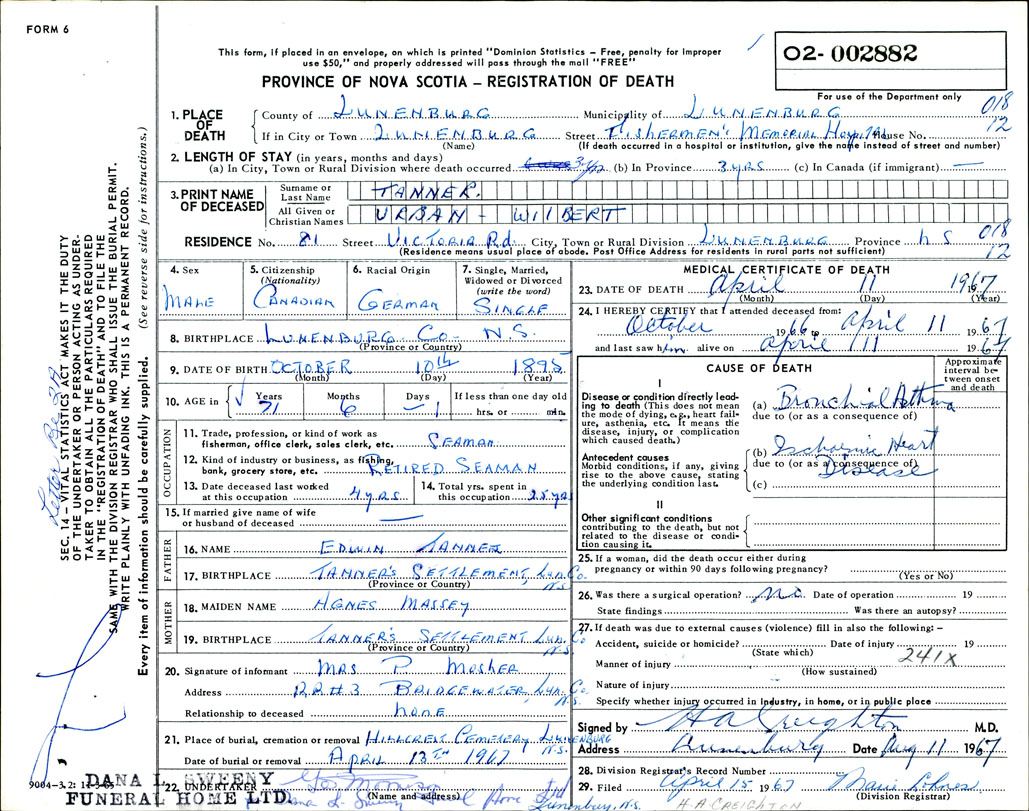 FORM 6
This form, if placed in an envelope, on which is printed "Dominion Statistics – Free, penalty for improper
use $50," and properly addressed will pass through the mail "FREE"
PROVINCE OF NOVA SCOTIA – REGISTRATION OF DEATH
O2- 002882
For use of the Department only
018
12
1. PLACE OF DEATH
County of LUNENBURG Municipality of LUNENBURG
If in City or Town LUNENBURG Street FISHERMEN'S MEMORIAL Hospital House No.
(Name) (If death occurred in a hospital or institution, give the name instead of street and number)
2. LENGTH OF STAY (in years, months and days)
(a) In City, Town or Rural Division where death occurred 3 yrs (b) In Province 3 yrs (c) In Canada (if immigrant) —
3. PRINT NAME OF DECEASED
Surname or Last Name TANNER.
All Given or Christian Names URBAN - WILBERT
RESIDENCE No. 81 Street VICTORIA Rd. City, Town or Rural Division LUNENBURG Province N S
018
12
(Residence means usual place of abode. Post Office Address for residents in rural parts not sufficient)
4. Sex MALE
5. Citizenship (Nationality) CANADIAN
6. Racial Origin GERMAN
7. Single, Married, Widowed or Divorced (write the word) SINGLE
8. BIRTHPLACE LUNENBURG CO. N.S.
(Province or Country)
9. DATE OF BIRTH OCTOBER 10th 1895
(Month) (Day) (Year)
10. AGE in Years 71 Months 6 Days 1 If less than one day old hrs. or min.
OCCUPATION
11. Trade, profession, or kind of work as
fisherman, office clerk, sales clerk, etc. SEAMAN
12. Kind of industry or business, as fishing,
bank, grocery store, etc. RETIRED SEAMAN
13. Date deceased last worked
at this occupation 4 yrs.
14. Total yrs. spent in
this occupation 25 yrs
15. If married give name of wife
or husband of deceased —
FATHER
16. NAME EDWIN TANNER
17. BIRTHPLACE TANNER'S SETTLEMENT, Lun. Co. N.S.
(Province or Country)
MOTHER
18. MAIDEN NAME AGNES MASSEY
19. BIRTHPLACE TANNER'S SETTLEMENT Lun. Co. N.S.
(Province or Country)
20. Signature of informant MRS P MOSHER
Address R.R #3 BRIDGEWATER, Lun. Co. N.S.
Relationship to deceased NONE
21. Place of burial, cremation or removal HILLCREST CEMETERY, LUNENBURG N.S.
Date of burial or removal APRIL 13TH 1967
22. UNDERTAKER
(Name and address)
Lunenburg, N.S.
DANA L. SWEENY
FUNERAL HOME LTD.
9004-3.2:
MEDICAL CERTIFICATE OF DEATH
23. DATE OF DEATH April 11 1967
(Month) (Day) (Year)
24. I HEREBY CERTIFY that I attended deceased from:
October 1966 to April 11 1967
and last saw him alive on April 11 1967
CAUSE OF DEATH
Approximate interval between onset and death
I
Disease or condition directly leading to death (This does not mean the mode of dying, e.g., heart failure, asthenia, etc. It means the disease, injury, or complication which caused death.)
(a) Bronchial Asthma
due to (or as a consequence of)
Antecedent causes
Morbid conditions, if any, giving rise to the above cause, stating the underlying condition last.
(b) Ischaemic Heart
due to (or as a consequence of)
Disease
(c)
II
Other significant conditions
contributing to the death, but not related to the disease or condition causing it.
25. If a woman, did the death occur either during
pregnancy or within 90 days following pregnancy?
(Yes or No)
26. Was there a surgical operation? No Date of operation 19
State findings Was there an autopsy?
27. If death was due to external causes (violence) fill in also the following: –
Accident, suicide or homicide? Date of injury 19
(State which)
241X
Manner of injury
(How sustained)
Nature of injury
Specify whether injury occurred in industry, in home, or in public place
Signed by H A Creighton M.D.
Address Lunenburg Date Aug 11 1967
28. Division Registrar's Record Number
29. Filed April 15 1967
(Division Registrar)
H. A CREIGHTON
SEC. 14 – VITAL STATISTICS ACT MAKES IT THE DUTY
OF THE UNDERTAKER OR PERSON ACTING AS UNDER-
TAKER TO OBTAIN ALL THE PARTICULARS REQUIRED
IN THE "REGISTRATION OF DEATH" AND TO FILE THE
SAME WITH THE DIVISION REGISTRAR WHO SHALL ISSUE THE BURIAL PERMIT.
WRITE PLAINLY WITH UNFADING INK. THIS IS A PERMANENT RECORD.
Every item of information should be carefully supplied. (See reverse side for instructions.)